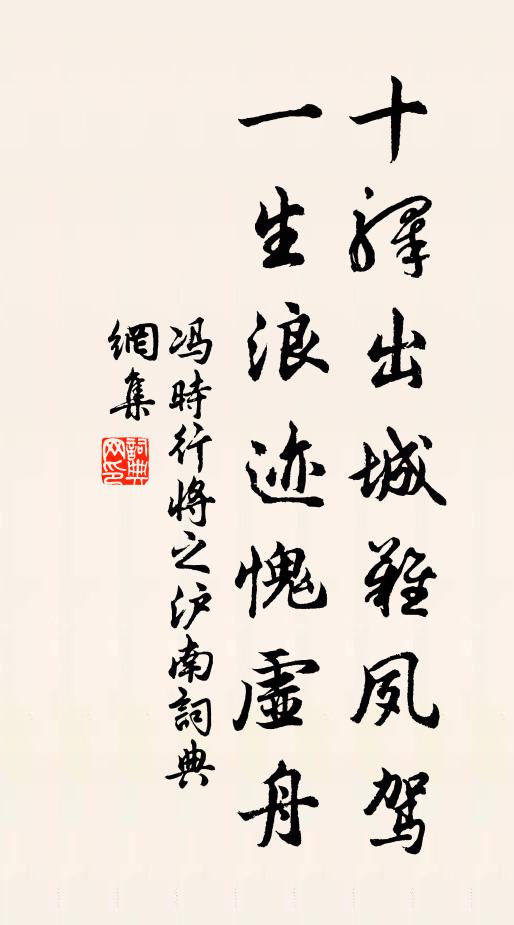 十驛出城難夙駕
一生浪迹愧虛舟
馮時行將之沪南詞典
網集
詞典
网印